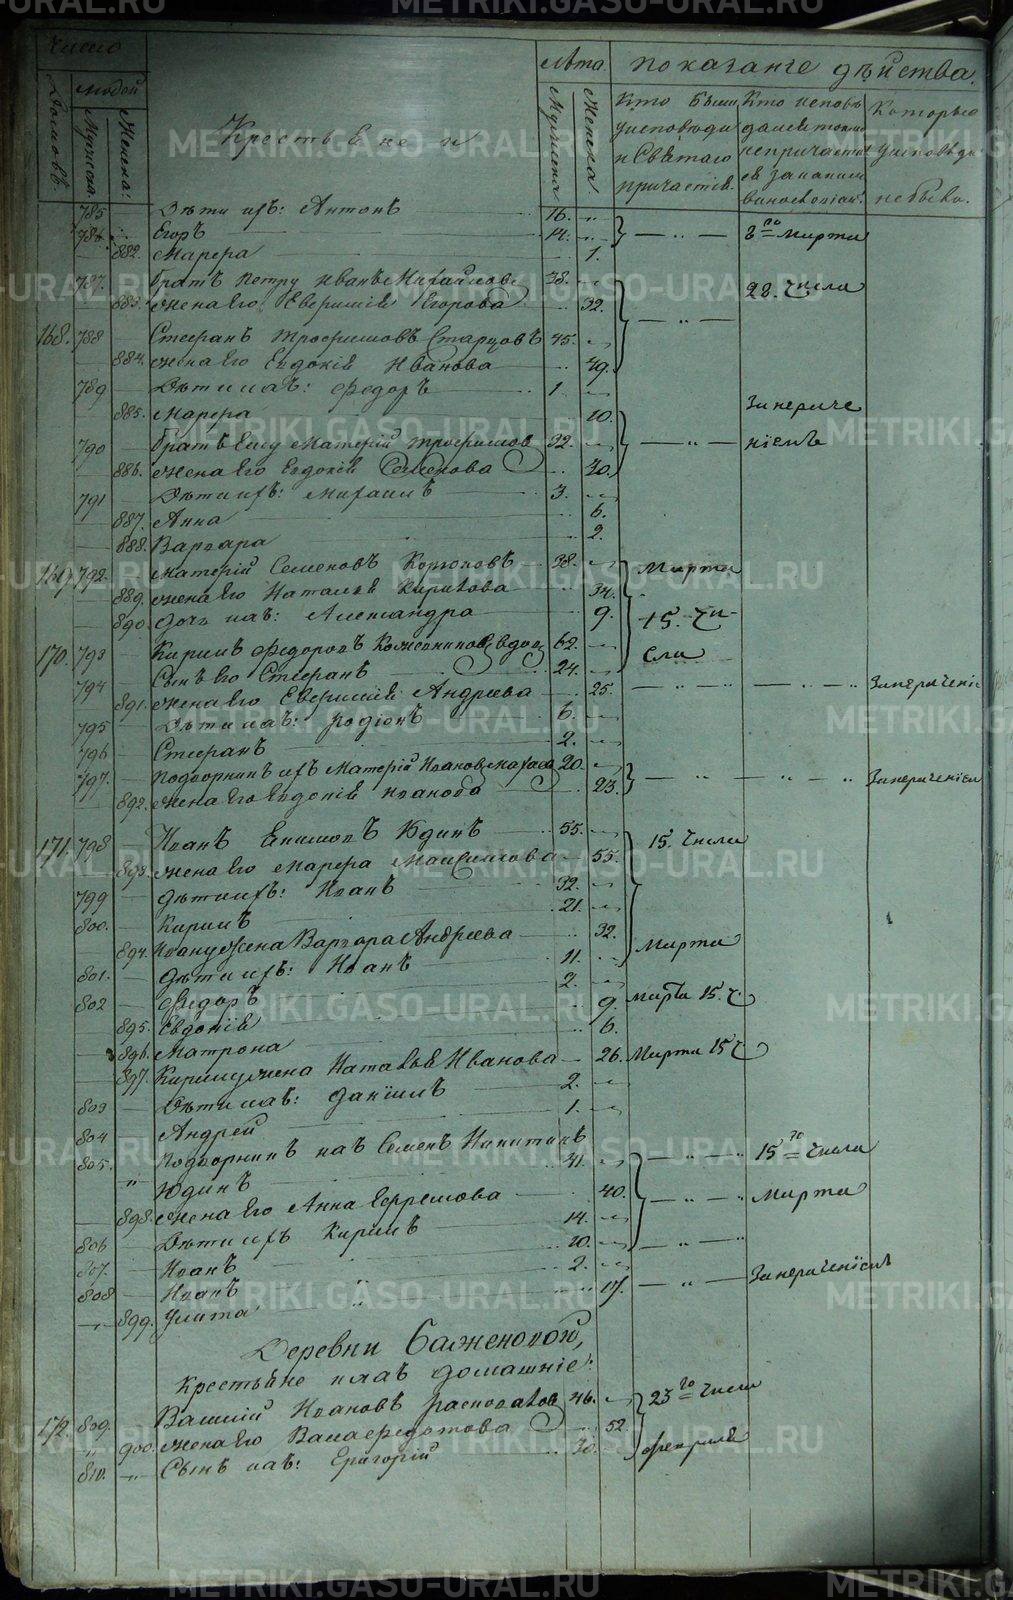 Число
людей
Домовъ.
Мужеска.
Женска.
Крестьяне и
лѣта
Мужеска
Женска.
показанге дѣйства.
Кто были у исповѣди и Святаго причастія.
Которые у исповѣди не были.
785 Дѣти ихъ: Антонъ 16.
786. Егоръ 14. 8го Марта
882. Марфа 1.
787. братъ Петру Иванъ Михайловъ 38. 28. числа
883. жена Его Евфимія Егорова 32.
168. 788 Стефанъ Трофимовъ Старцовъ 45.
884. жена Его Евдокія Иванова 49.
789 Дѣти ихъ: Федоръ 1
885. Марфа 10. За нераче
790 братъ Ему Матфей Трофимов 32. ніемъ
886. жена Его Евдокія Семенова 30.
791 Дѣти ихъ: Михаилъ 3.
887. Анна 6.
888. Варвара 2.
169. 792. Матфей Семеновъ 38. Марта
889. жена Его Наталья Кирилова 34.
890. дочь ихъ: Александра 9. 15. чи-
170. 793 Кирилъ Федоровъ Кожевниковъ, вдов, 62. сла
794 Сынъ Его Стефанъ 24.
891. жена Его Евфимія Андреева 25. За нерачені
795 Дѣти ихъ: Родіонъ 6.
796 Стефанъ 2.
797. Подворникъ ихъ Матфей Иванов 20.
892. жена Его Евдокія Иванова 23. За нераченіем
171. 798 Иванъ Юдинъ 55. 15. числа
893. жена Его Марфа Максимова 55.
799 Дѣти ихъ: Иванъ 32.
800. Кирилъ 21.
894. Ивану жена Варвара Андреева 32. Марта
801. Дѣти ихъ: Иванъ 11.
802 Федоръ 2.
895. Евдокія 9. Марта 15. ч
896. Матрона 6.
897. Кирилу жена Наталья Иванова 26. Марта 15 ч
803 Дѣти ихъ: Даніилъ 2.
804 Андрей 1.
805. Подворникъ ихъ Семенъ Никитинъ 15го числа
" Юдинъ 41.
898. жена Его Анна Ефремова 40. Марта
806 Дѣти ихъ Кирилъ 14.
807. Иванъ 10.
808 Иванъ 2.
899. Улита 17. За нераченіемъ
Деревни Баженовой,
Крестьяне домашніе:
172. 809. Василій Ивановъ 46. 23го числа
900. жена Его Федотова 52.
810. Сынъ ихъ: Григорій 30. февраля
METRIKI.GASO-URAL.RU